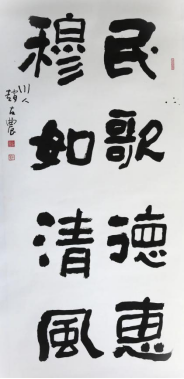 民歌德惠
穆如清風
川人趙石農